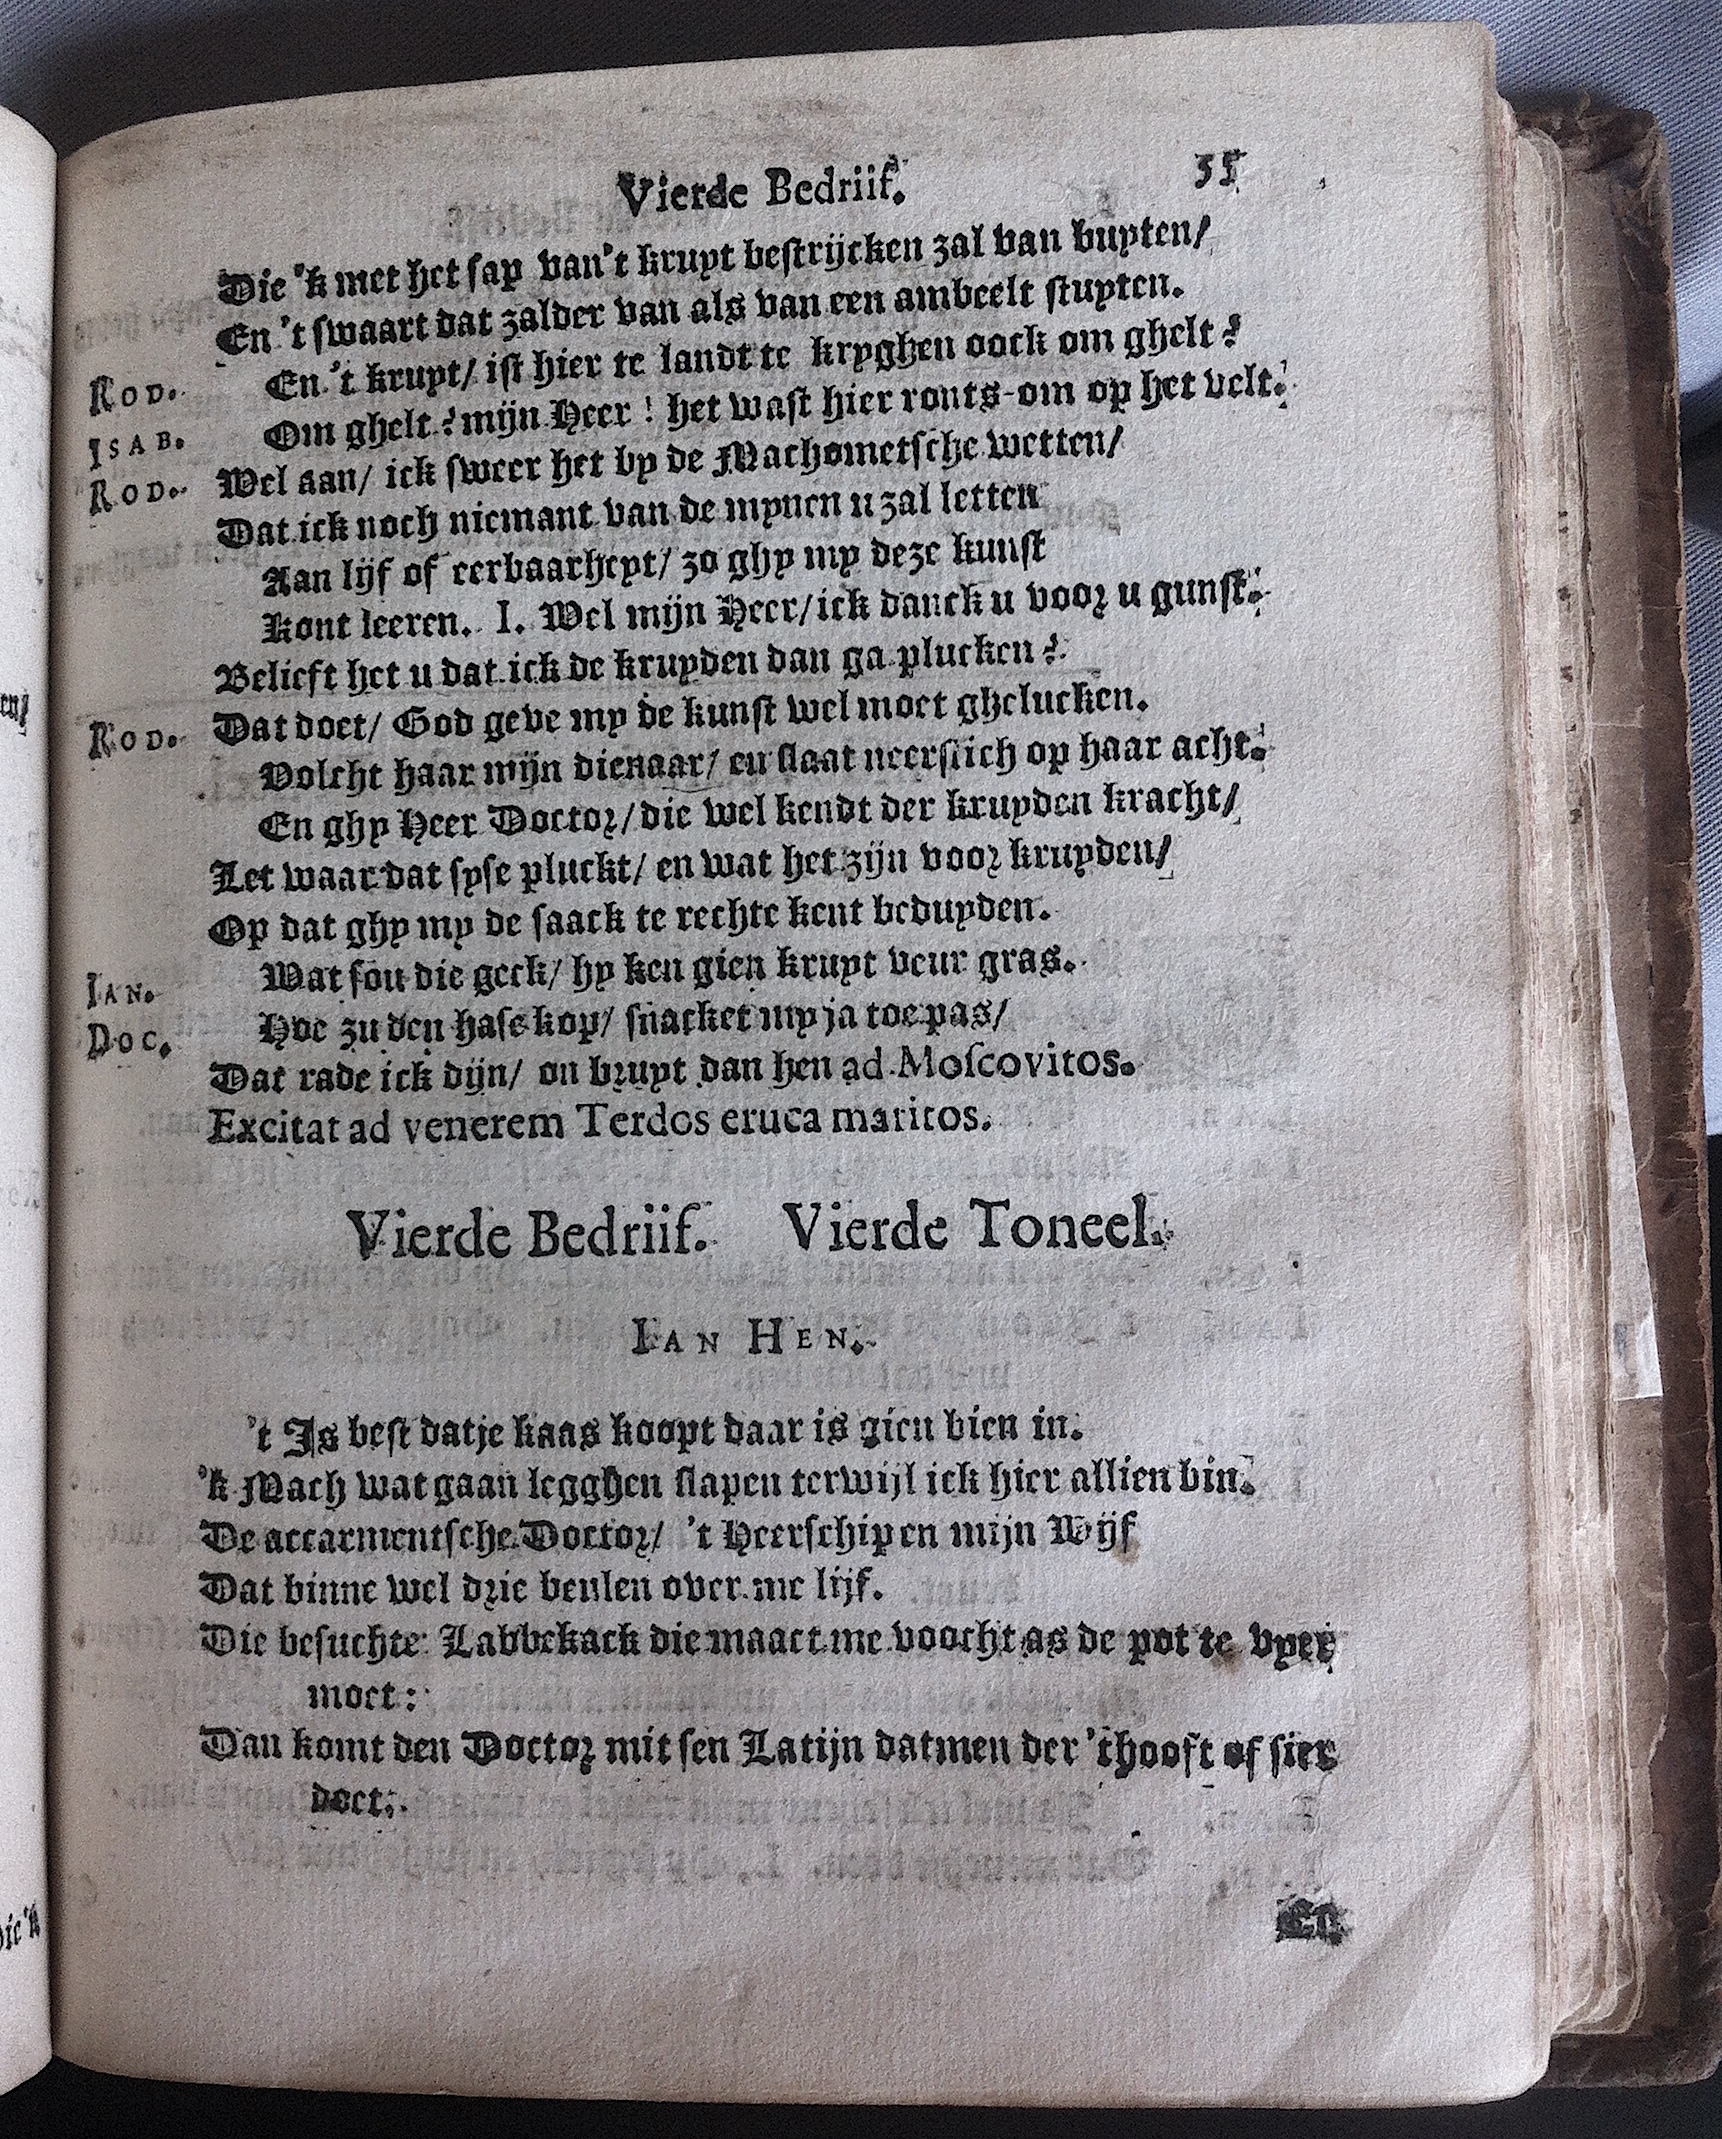 Vierde Bedriif. 35
Die 'k met het sap van 't kruyt bestrijcken zal van buyten/
En 't swaart dat zalder van als van een ambeelt stuyten.
ROD. En 't kruyt/ ist hier te landt te kryghen oock om ghelt?
ISAB. Om ghelt? mijn Heer! het wast hier ronts-om op het velt.
ROD. Wel aan/ ick sweer het by de Machometsche wetten/
Dat ick noch niemant van de mynen u zal letten
Aan lijf of eerbaarheyt/ zo ghy my deze kunst
Kont leeren. I. Wel mijn Heer/ ick danck u voor u gunst.
Belieft het u dat ick de kruyden dan ga plucken?
ROD. Dat doet/ God geve my de kunst wel moet ghelucken.
Volcht haar mijn dienaar/ en slaat neerstich op haar acht.
En ghy Heer Doctor/ die wel kendt der kruyden kracht/
Let waar dat syse pluckt/ en wat het zijn voor kruyden/
Op dat ghy my de saack te rechte kent beduyden.
IAN. Wat sou die geck/ hy ken gien kruyt veur gras.
DOC. Hoe zu den hase kop/ snacket my ja toe pas/
Dat rade ick dijn/ on bruyt dan hen ad Moscovitos.
Excitat ad venerem Terdos eruca maritos.
Vierde Bedriif. Vierde Toneel.
IAN HEN.
't Is best datje kaas koopt daar is gien bien in.
'k Mach wat gaan legghen slapen terwijl ick hier allien bin.
De accarmentsche Doctor/ 't Heerschip en mijn Wijf
Dat binne wel drie beulen over me lijf.
Die besuchte Labbekack die maact me voocht as de pot te vyer
moet:
Dan komt den Doctor mit sen Latijn datmen der 't hooft of sier
doet.
En